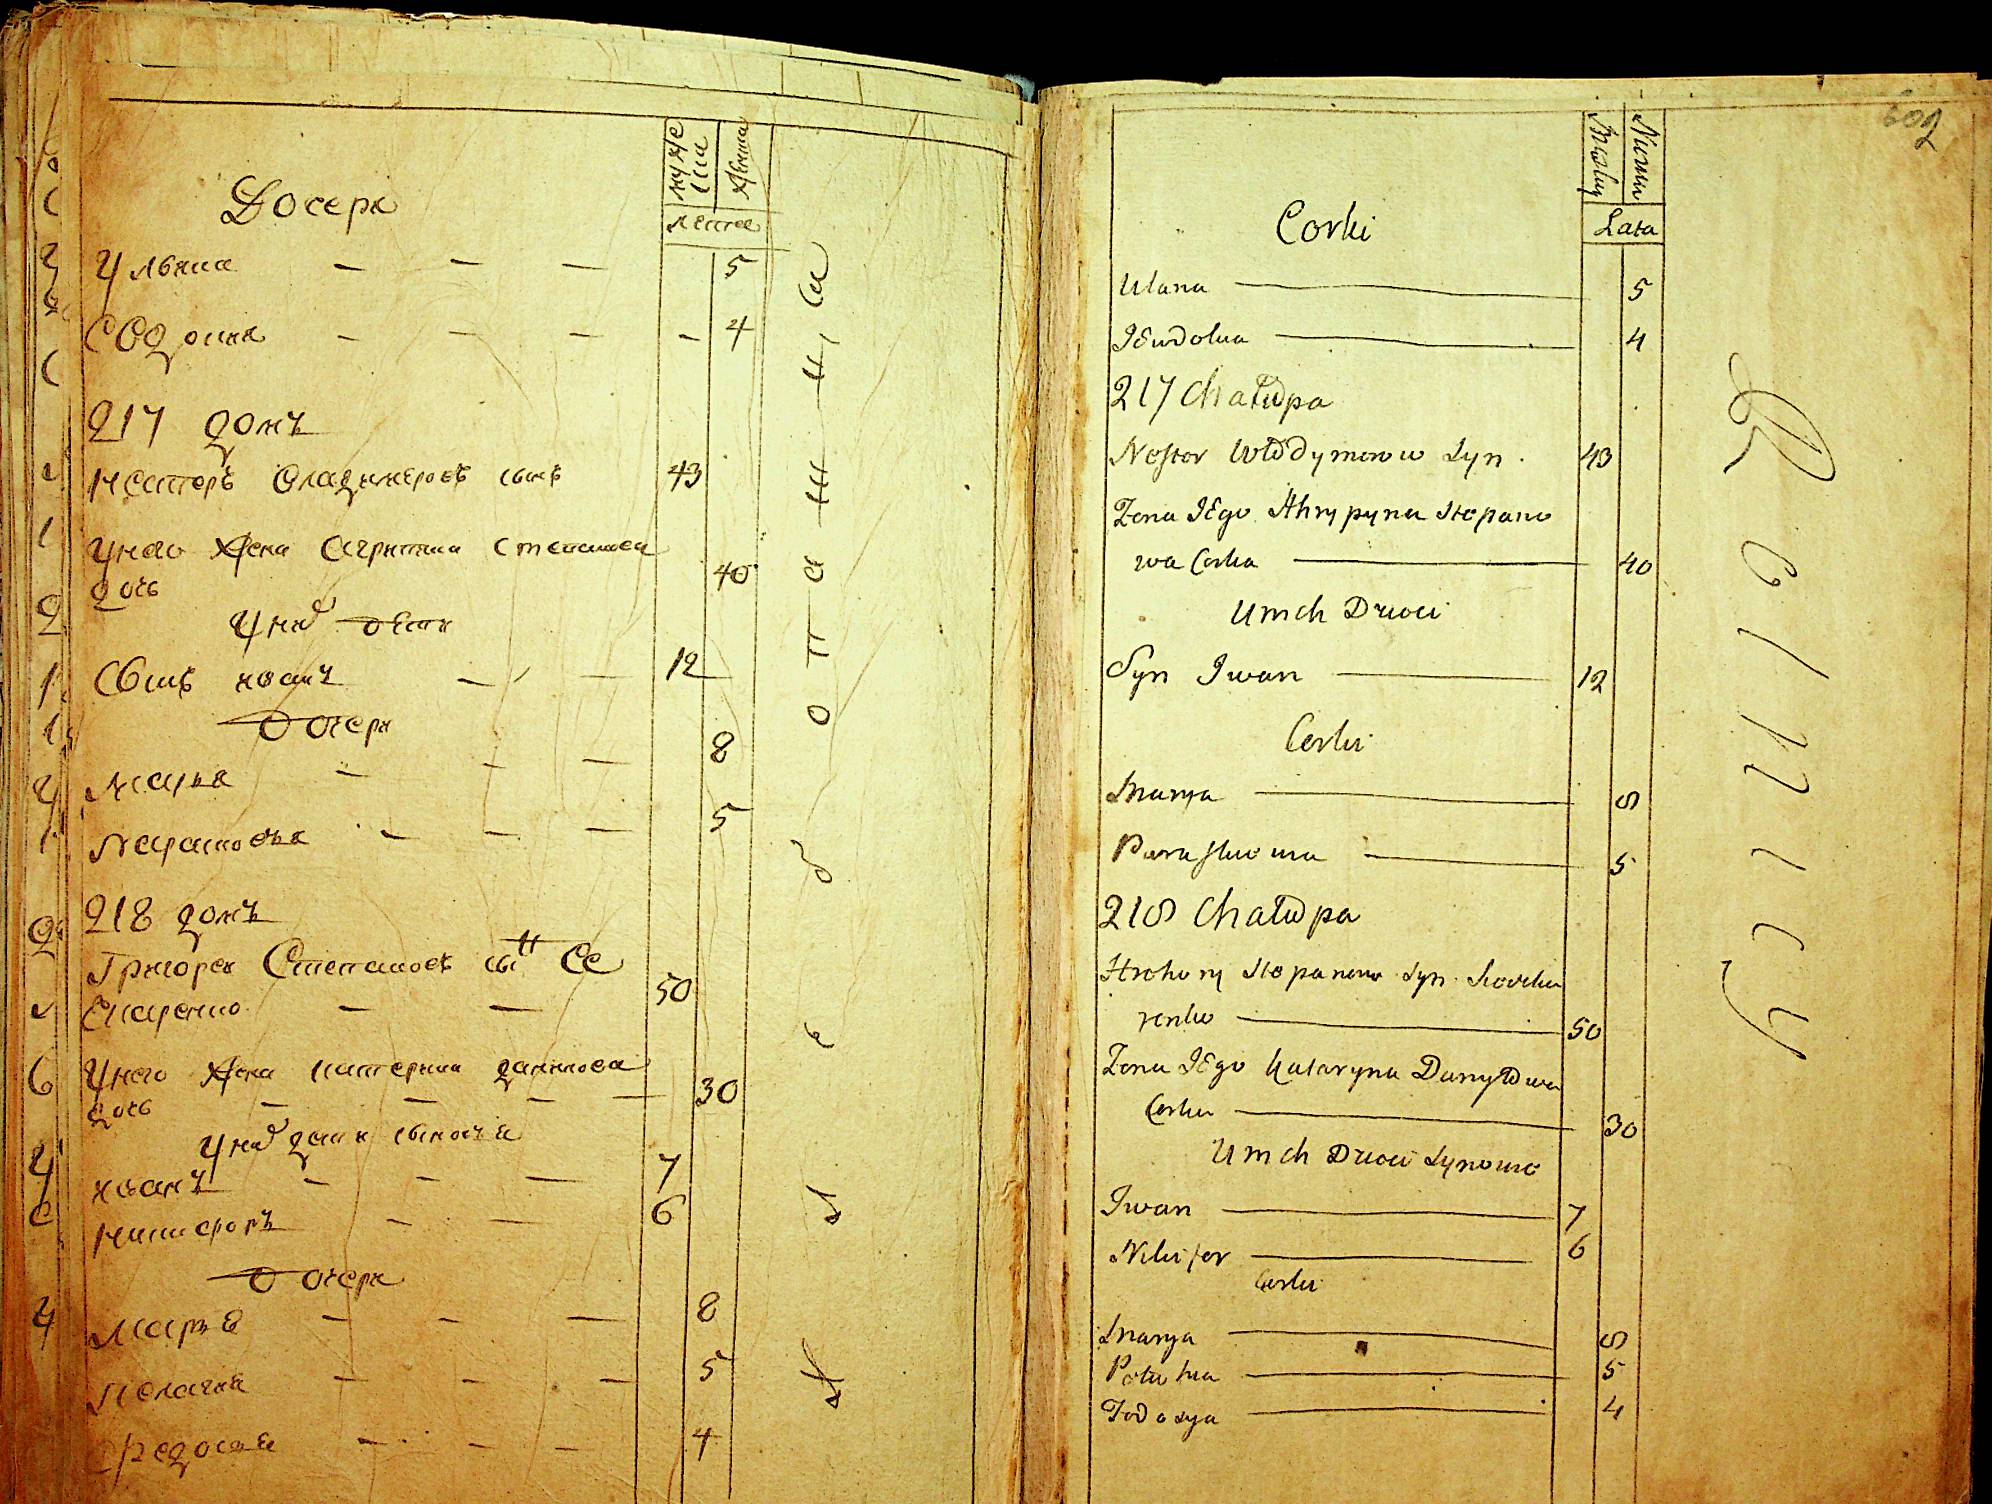 Дочери
мужеска
женска
лета
Ульяна — — — 5
Евдокия — — — - 4
217 домъ
Нестеръ Владимеровъ сынъ 43
Унего жена Агрипина Степанова
дочь 40
У них дети
Сынъ иванъ — — — 12
Дочери
Марья — — — 8
Парасковья — — — 5
218 домъ
Григорей Степановъ сынъ Се
— — 50
Унего жена катерина данилова
дочь — — — — 30
У них дети сыновья
иванъ — — — 7
Никифоръ — — 6
Дочери
Марья — — — 8
Пелагия — — — 5
Федосья — — — 4
602
Lata
Corki
Ulana — 5
4
217 Chałupa
Nestor Włodymerow Syn. 43
Zona IEgo Ahrypyna Stepano
wa Corka — 40
U nich Dzieci
Syn Iwan — 12
Corki
Marya — 8
Paraskiewia — 5
218 Chałupa
Hrehory Stepanow Syn
renko — 50
Zona IEgo Kataryna Danyłowa
Corka — 30
U nich Dzieci Synowie
Iwan — 7
Nikifor — 6
Corki
Marya — 8
Połahia — 5
Fedosya — 4